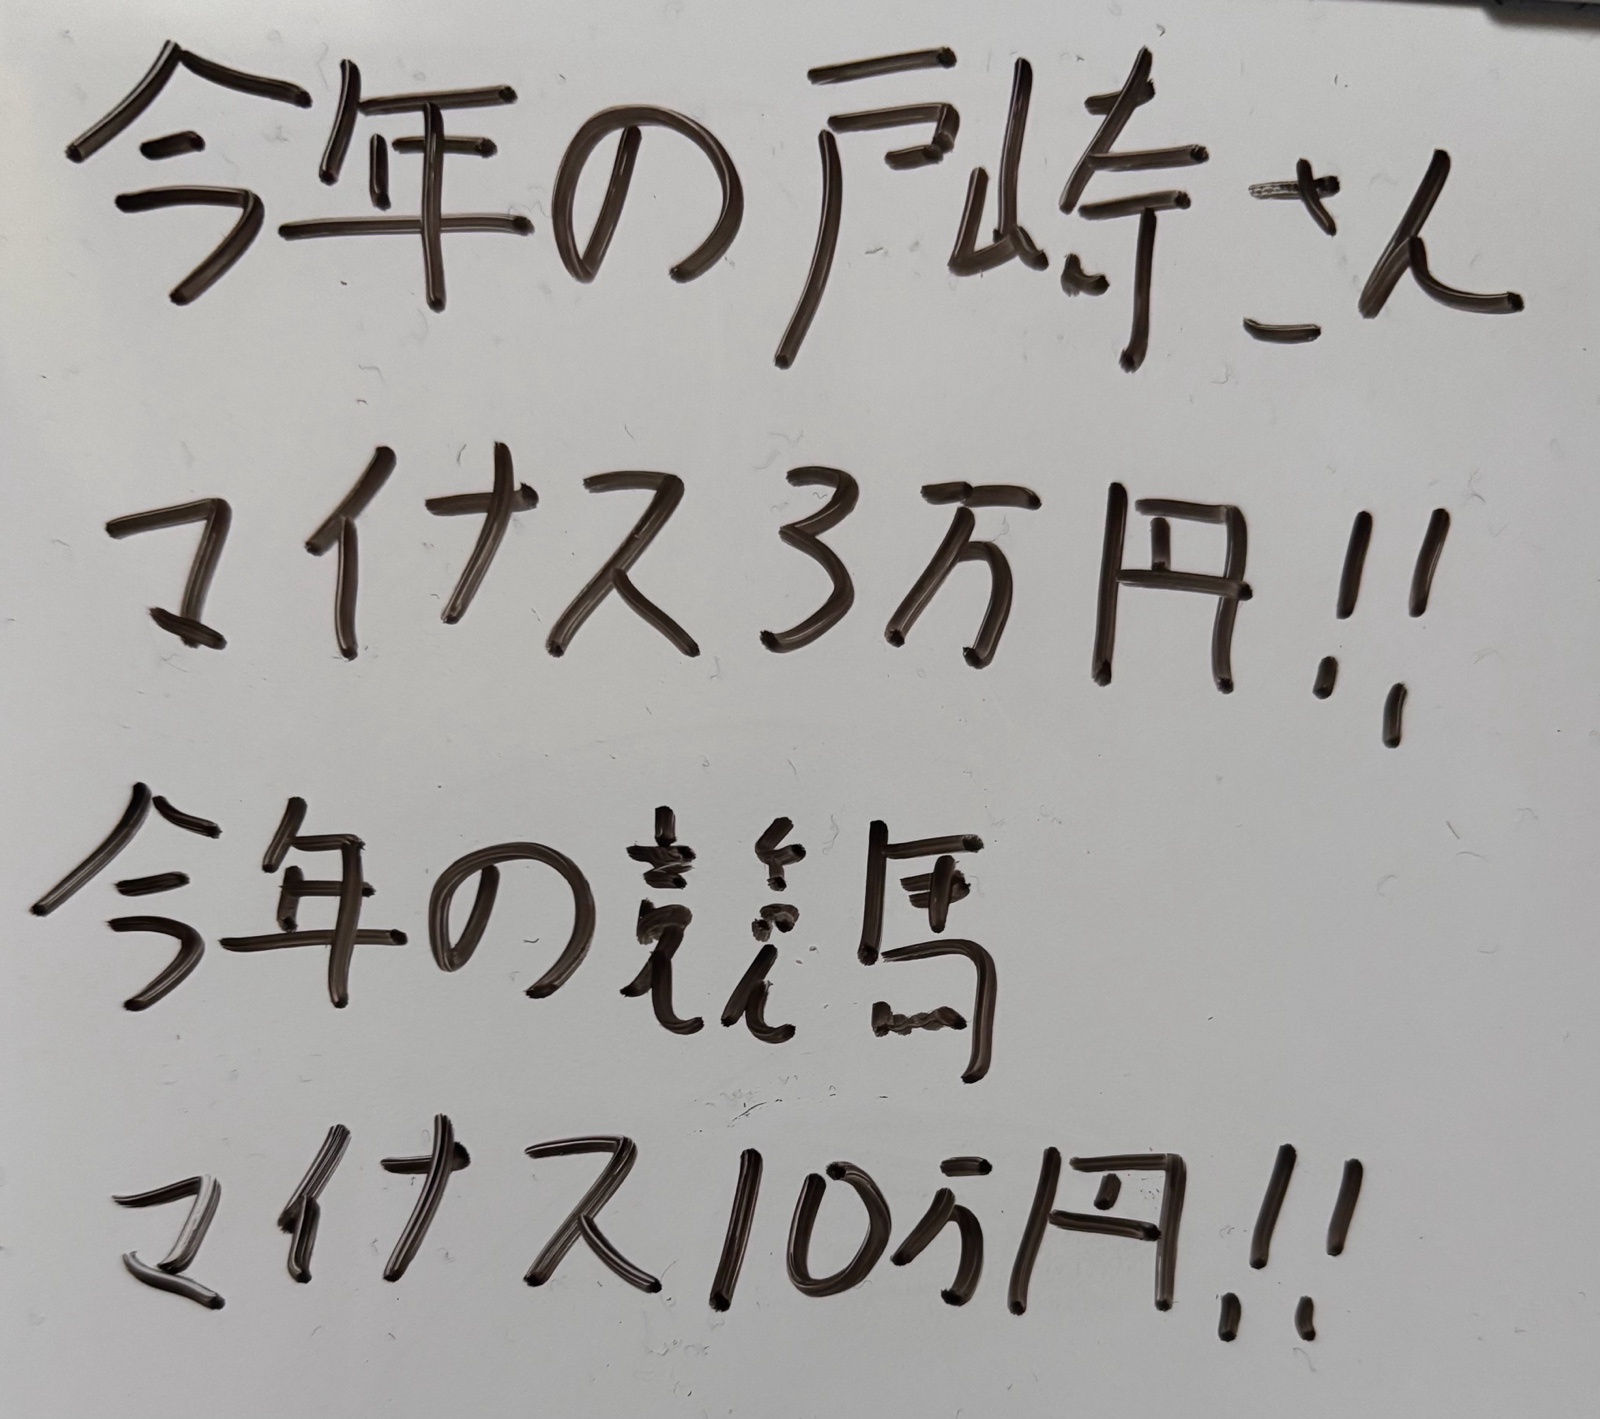 今年の戸崎さん
マイナス3万円!!
今年の競馬
マイナス10万円!!